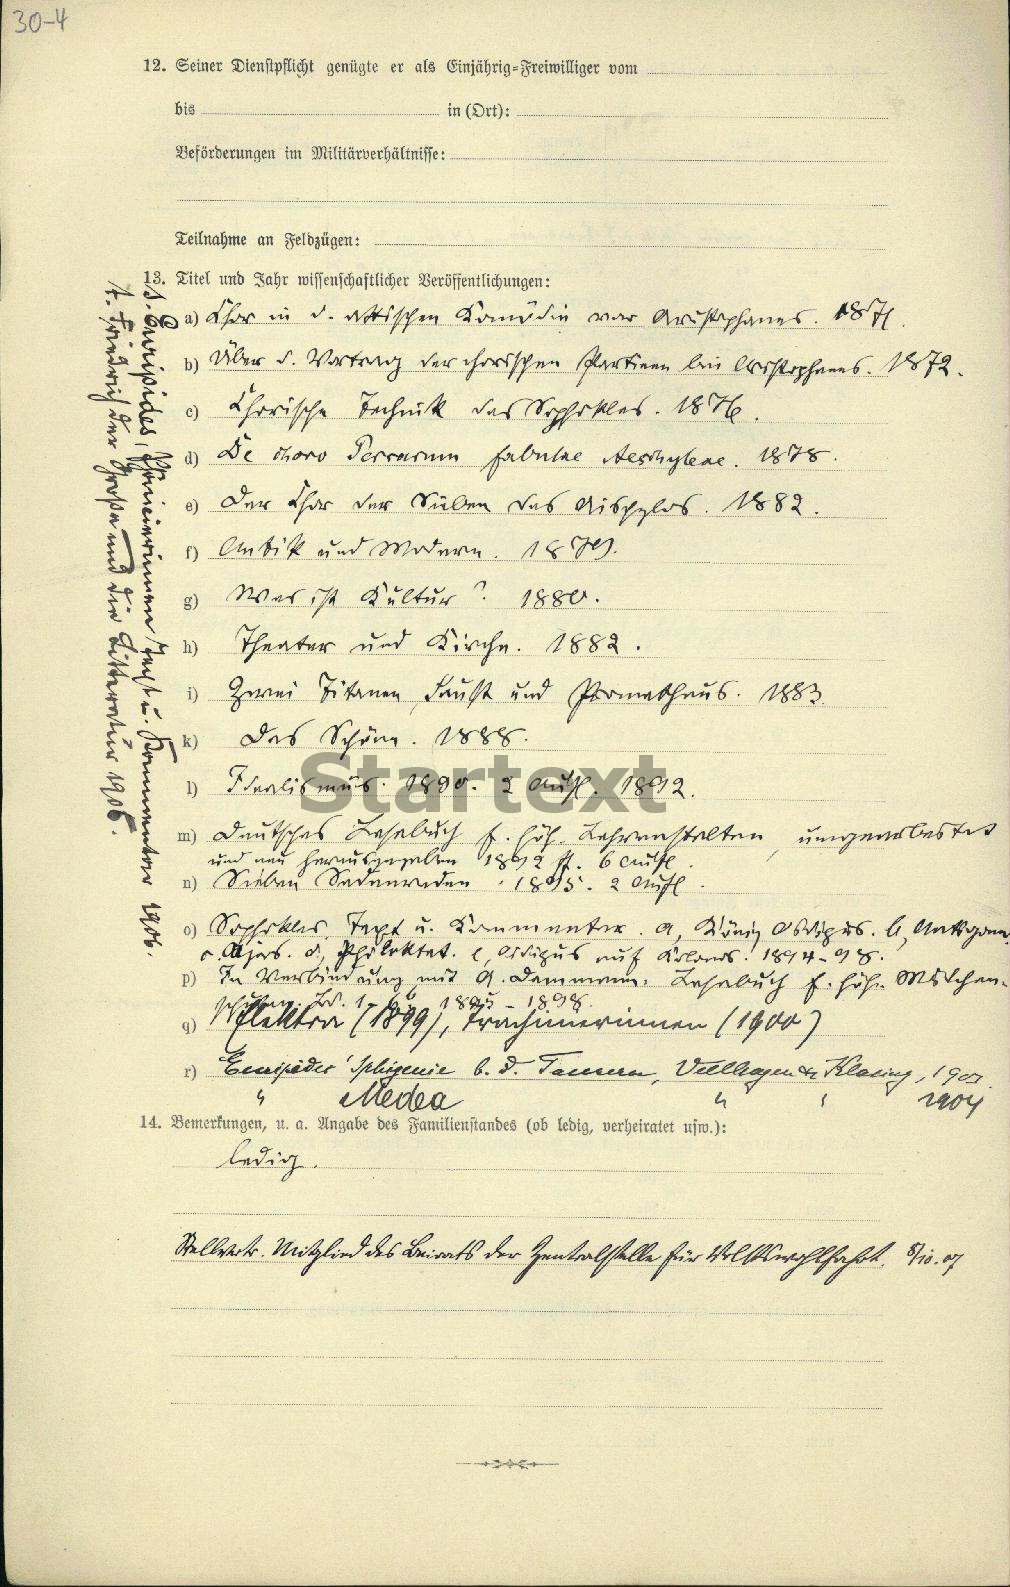 30-4
12. Seiner Dienstpflicht genügte er als Einjährig-Freiwilliger vom
bis in (Ort):
Beförderungen im Militärverhältnisse:
Teilnahme an Feldzügen:
13. Titel und Jahr wissenschaftlicher Veröffentlichungen:
a) Chor in d. attischen Komödie vor Aristophanes. 1871.
b) Über d. Vortrag der chorischen Partieen bei Aristophanes. 1872.
c) Chorische Technik des Sophokles. 1876.
d) De choro Persarum fabulae Aeschyleae. 1878.
e) Der Chor der Sieben des Aischylos. 1882.
f) Antik und Modern. 1879.
g) Was ist Kultur? 1880.
h) Theater und Kirche. 1882.
i) Zwei Titanen, Faust und Prometheus. 1883
k) Das Schöne. 1888.
l) Idealismus. 1890. 2 Aufl. 1892.
m) Deutsches Lesebuch f. höh. Lehranstalten, umgearbeitet
und neu herausgegeben 1892 ff. 6 Aufl.
n) Sieben Sedanreden. 1895. 2 Aufl.
o) Sophokles, Text u. Kommentar. a, König Oidipus. b, Antigone.
c. Ajas. d, Philoktet. e, Oidipus auf Kolonos. 1894-98.
p) In Verbindung mit A. Dammann: Lesebuch f. höh. Mädchen-
schulen. Bd. 1-6 1895-1898.
q) Elektra (1899), Trachinierinnen (1900)
r) Euripides' Iphigenie b. d. Taurern, Velhagen & Klasing, 190
" Medea " " 1904
s. Euripides, Phönicierinnen Text u. Kommentar 1906.
t. Friedrich der Große und die Litteratur 1906.
14. Bemerkungen, u. a. Angabe des Familienstandes (ob ledig, verheiratet usw.):
ledig.
Stellvertr. Mitglied des Beirats der Zentralstelle für Volkswohlfahrt. 8/10. 07
Startext